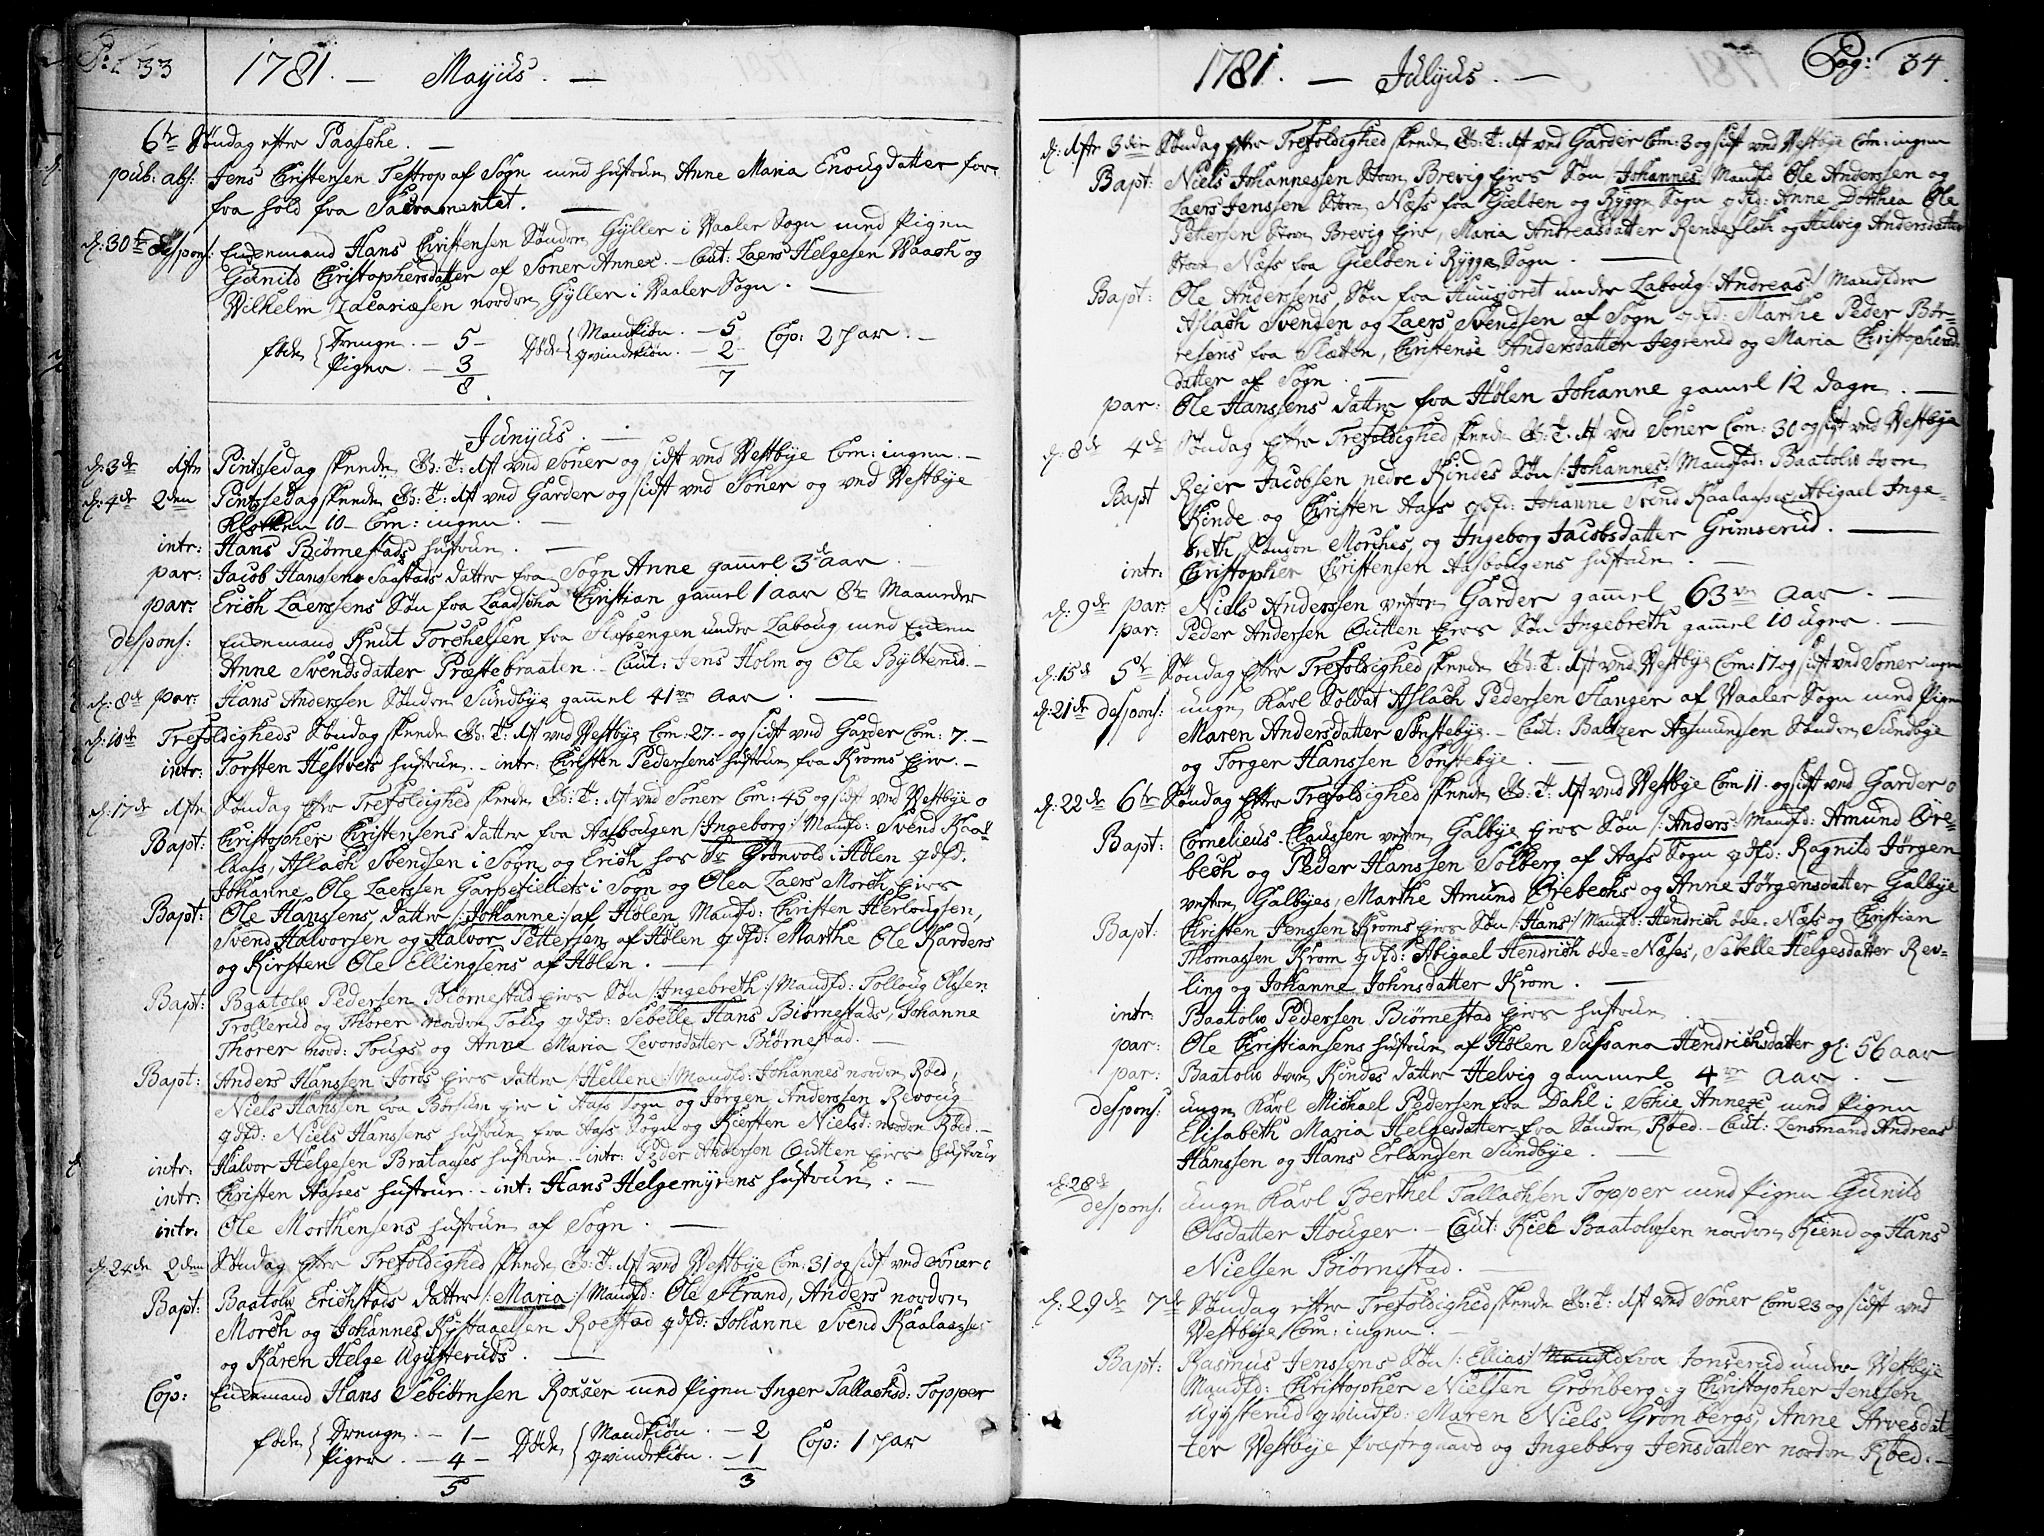 P: 33
1781. — Mayius. —
6te Søndag efter Paaske. —
pub: abs: Jens Christensen Testrop af Sogn med hustrue Anne Maria Enougdatter for
fra hold fra Sacramentet. —
d: 30te despons: Enkemand Hans Christensen Søndre Gyller i Vaaler Sogn med Pigen
Gunild Christophersdatter af Soner Annex. — Caut: Laers Helgesen Vaach og
Vilhelm Zacariæsen nordre Gyller i Vaaler Sogn. —
føde Drenge. — 5 — Døde Mandkiøn. — 5 Cop: 2 par. —
Piger. — 3 qvindekiøn. — 2
8 7
Junyus. —
d: 3de 1ste Pintsedag skeede G: T: 1st ved Soner og sidst ved Vestbye Com: ingen. —
d: 4de 2den Pintsedag skeede G: T: 1st ved Garder og sidst ved Soner og ved Vestbye
Klokken 10 — Com: ingen. —
intr: Hans Biørnestads hustrue. —
par: Jacob Hanssens Saastads datter fra Sogn Anne gammel 3de aar. —
par: Erich Laerssens Søn fra Laadscha Christian gammel 1 aar 8te Maaneder
despons: Enkemand Knut Torchelsen fra Slossengen under Laboug med Enken
Anne Svendsdatter Præstebraaten. — Caut: Jens Holm og Ole Bylterud. —
d: 8de par: Hans Anderssen Søndre Sundbye gammel 41ve aar. —
d: 10de Trefoldigheds Søndag skeede G: T: 1st ved Vestbye Com: 27. — sidst ved Garder Com: 7. —
intr: Torsten Hestvets hustrue. — intr: Christen Pedersens hustrue fra Kroms Eier. —
d: 17de 1ste Søndag efter Trefoldighed skeede G: T: 1st ved Soner Com: 45 og sidst ved Vestbye 0
Bapt: Christopher Christensens datter fra Aasbougen /: Ingeborg :/ Mandfd: Svend Kaa-
laas, Aslach Svendsen i Sogn, og Erich hos Sr Grønvold i Hølen qdfd:
Johanne, Ole Laerssen Garpefiellets i Sogn og Olea Laers Morch Eiers
Bapt: Ole Hanssens datter /: Johanne :/ af Hølen, Mandfd: Christen Herlougsen,
Svend Halvorsen og Halvor Pettersen af Hølen qdfd: Marthe Ole Karders
og Kirsten Ole Ellingsens af Hølen. —
Bapt: Baatolv Pedersen Biørnestad Eiers Søn /: Ingebreth :/ Mandfd: Tolloug Olssen
Trollerud og Thorer nordre Toug qdfd: Sebelle Hans Biørnestads, Johanne
Thorer nord: Tougs og Anne Maria Levorsdatter Biørnestad. —
Bapt: Anders Hanssen Jords Eiers datter /: Hellene :/ Mandfd: Johannes nordre Røed,
Niels Hanssen fra Børsum Eier i Aass Sogn og Jørgen Anderssen Revoug
qdfd: Niels Hanssens hustrue fra Aass Sogn og Kiersten Nielsd: nordre Røed. —
intr: Halvor Helgesen Brataases hustrue. — intr: Peder Andersen Outten Eiers hustrue
intr: Christen Aases hustrue. — int: Hans Helgemyrens hustrue. —
intr: Ole Morthensens hustrue af Sogn. —
d: 24de 2den Søndag efter Trefoldighed skeede G: T: 1st ved Vestbye Com: 31 og sidst ved Soner 0
Bapt: Baatolv Erichstads datter /: Maria :/ Mandfd: Ole Strand, Anders nordre
Morch og Johannes Kystaaelsen Roestad qdfd: Johanne Svend Kaalaases
og Karen Helge Ugysteruds. —
Cop: Enkemand Hans Sebiørnsen Rosser med Pigen Inger Tallachsd: Topper
føde Drenge. — 1 — Døde Mandkiøn. — 2 Cop: 1 par
Piger. — 4 — qvindekiøn. — 1
5 3
1781. — Julyus. — Pag: 34.
d: 1ste 3die Søndag efter Trefoldighed skeede G: T: 1st ved Garder Com: 3 og sidst ved Vestbye Com: ingen
Bapt: Niels Johannessen Store Brevig Eiers Søn Johannes, Mandfd Ole Anderssen og
Laers Jenssen Store Næss fra Gielden og Rygge Sogn qdfd: Anne Dorthea Ole
Pettersen Store Brevig Eier, Maria Andreasdatter Rendefloth og Helvig Andersdatter
Store Næss fra Gielden i Rygge Sogn. —
Bapt: Ole Anderssens Søn fra Huusjoret under Laboug /: Andreas :/ Mandfdre
Aslach Svendsen og Laers Svendsen af Sogn qdfd: Marthe Peder Bør-
resens fra Sletten, Christense Andersdatter Jegerud og Maria Christophersd
datter af Sogn. —
par: Ole Hanssens datter fra Hølen Johanne gamel 12 dage. —
d: 8de 4de Søndag efter Trefoldighed skeede G: T: 1st ved Soner Com: 30 og sidst ved Vestbye
Bapt Reier Jacobsen nedre Kindes Søn /: Johannes :/ Mandfd: Baatolv øvre
Kinde og Christen Aass qdfd: Johanne Svend Kaalaases, Abigael Inge-
breth Søndre Morches, og Ingeborg Jacobsdatter Grimserud. —
intr: Christopher Christensen Aasbougens hustrue. —
d: 9de par: Niels Anderssen vestre Garder gammel 63ve aar. —
par: Peder Andersen Outten Eiers Søn Ingebreth gammel 10 uger. —
d: 15de 5te Søndag efter Trefoldighed skeede G: T: 1st ved Vestbye Com: 17 og sidst ved Soner ingen
d: 21de despons: unge Karl Soldat Aslach Pedersen Slanger af Vaaler Sogn med Pigen
Maren Andersdatter Sonstebye. — Caut: Baltzer Aasmundsen Søndre Sundbye
og Torger Hanssen Sonstebye. —
d: 22de 6te Søndag efter Trefoldighed skeede G: T: 1st ved Vestbye Com 11 — og sidst ved Garder 0
Bapt: Cornelieus Claussen vestre Galbye Eiers Søn /: Anders :/ Mandfd: Amund Øre-
bech og Peder Hanssen Solberg af Aass Sogn qdfd: Ragnild Jørgen
vestre Galbyes, Marthe Amund Ørebechs og Anne Jørgensdatter Galbye
Bapt: Christen Jenssen Kroms Eiers Søn /: Hans :/ Mandfd: Hendrich øde = Næss og Christian
Thomassen Krom qdfd: Abigael Hendrich øde = Næses, Sebelle Helgesdatter Rev-
ling og Johanne Johnsdatter Krom. —
intr: Baatolv Pedersen Biørnestad Eiers hustrue. —
par: Ole Christiansens hustrue af Hølen Sussana Hendrichsdatter gl: 56 aar
par: Baatolv øvre Kindes datter Helvig gammel 4re aar. —
despons: unge Karl Michael Pedersen fra Dahl i Schie Annex med Pigen
Elisabeth Maria Helgesdatter fra Søndre Røed. — Caut: Lensmand Andreas
Hanssen og Hans Erlandsen Sundbye. —
d: 28de despons: unge Karl Berthel Tallachsen Topper med Pigen Gunild
Olsdatter Houger. — Caut: Kiel Baatolvsen nordre Kiend og Hans
Nielsen Biørnestad. —
d: 29de 7de Søndag efter Trefoldighed skeede G: T: 1st ved Soner Com 23 og sidst ved
Vestbye Com: ingen. —
Bapt: Rasmus Jenssens Søn /: Ellias :/ Mandfd fra Jonserud under Vestbye
Mandfd: Christopher Nielsen Grønberg og Christopher Jenssen
Ugysterud qvindfd: Maren Niels Grønbergs, Anne Arvesdat-
ter Vestbye Præstegaard og Ingeborg Jensdatter nordre Røed. —